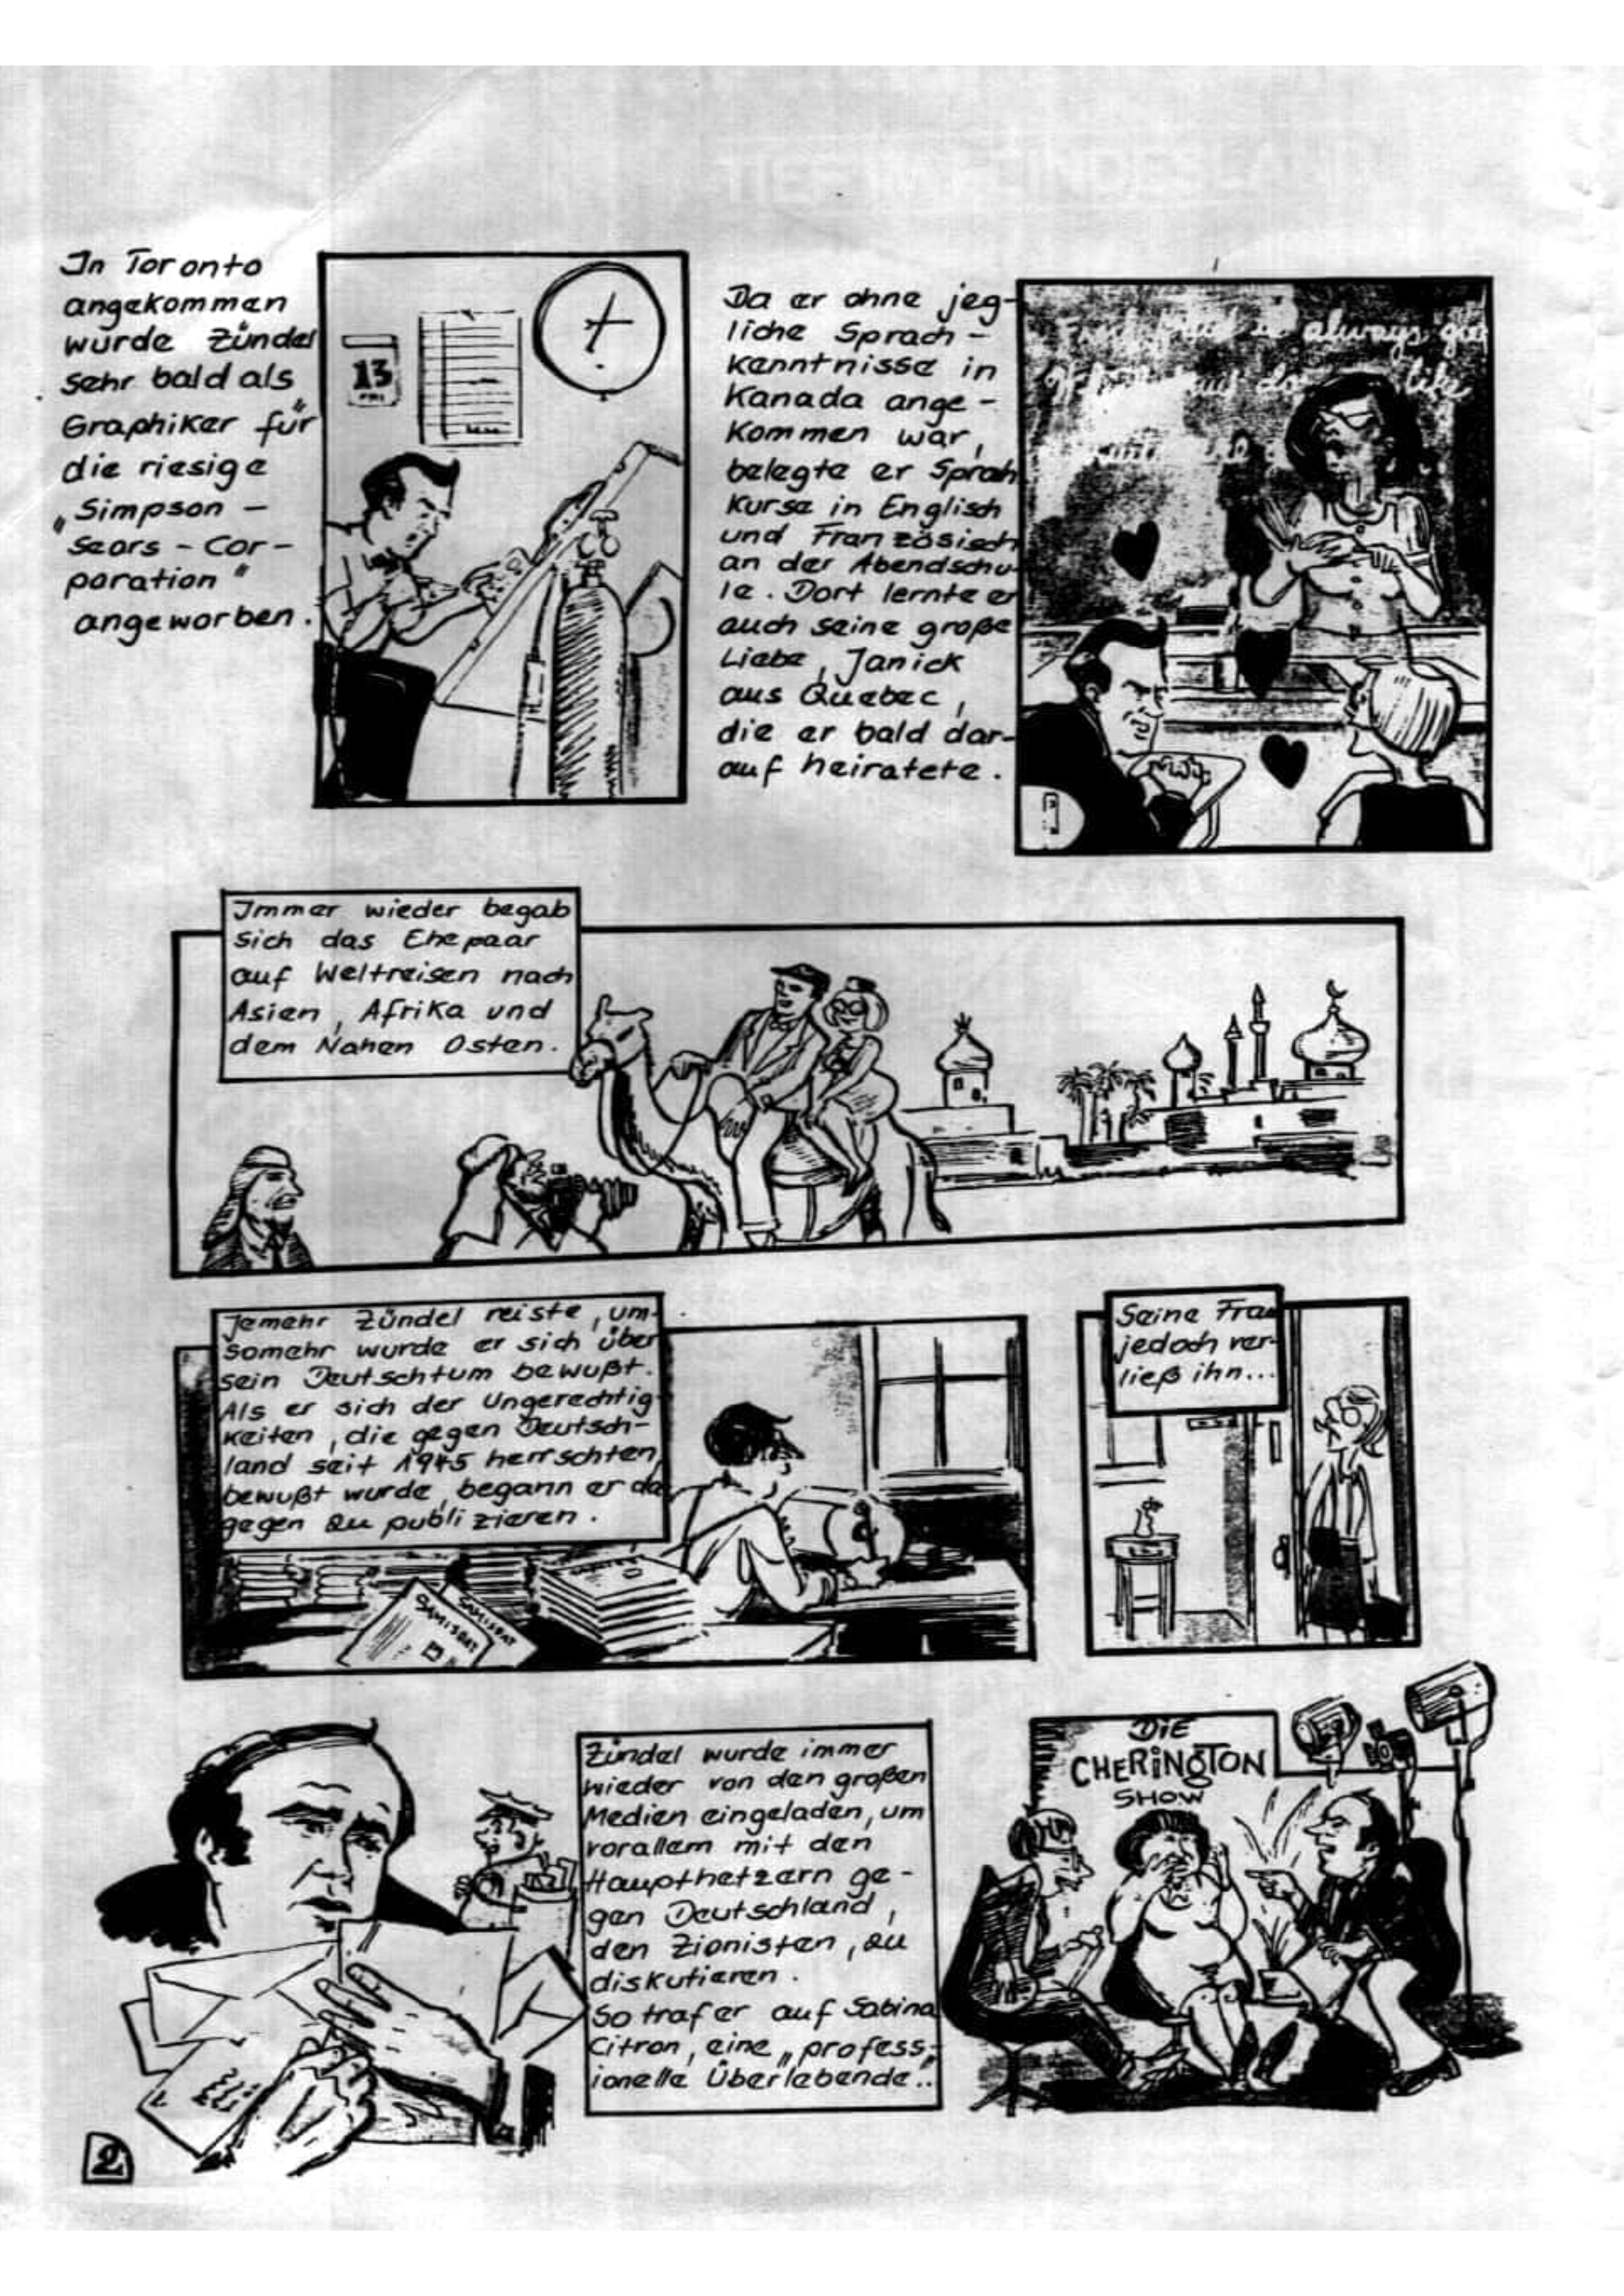 In Toronto
angekommen
wurde Zündel
sehr bald als
Graphiker für
die riesige
"Simpson -
Sears - Cor-
poration"
angeworben.
13
FRI
Da er ohne jeg-
liche Sprach-
kenntnisse in
Kanada ange-
kommen war,
belegte er Sprah
kurse in Englisch
und Französisch
an der Abendschu-
le. Dort lernte er
auch seine große
Liebe, Janick
aus Quebec,
die er bald dar-
auf heiratete.
is always
Immer wieder begab
sich das Ehepaar
auf Weltreisen nach
Asien, Afrika und
dem Nahen Osten.
Jemehr Zündel reiste, um-
somehr wurde er sich über
sein Deutschtum bewußt.
Als er sich der Ungerechtig-
keiten, die gegen Deutsch-
land seit 1945 herrschten,
bewußt wurde, begann er da
gegen zu publizieren.
SAMISDAT
SAMISDAT
Seine Frau
jedoch ver-
ließ ihn...
Zündel wurde immer
wieder von den großen
Medien eingeladen, um
vorallem mit den
Haupthetzern ge-
gen Deutschland,
den Zionisten, zu
diskutieren.
So traf er auf Sabina
Citron, eine "profess-
ionelle Überlebende"..
DiE
CHERiNGTON
SHOW
2